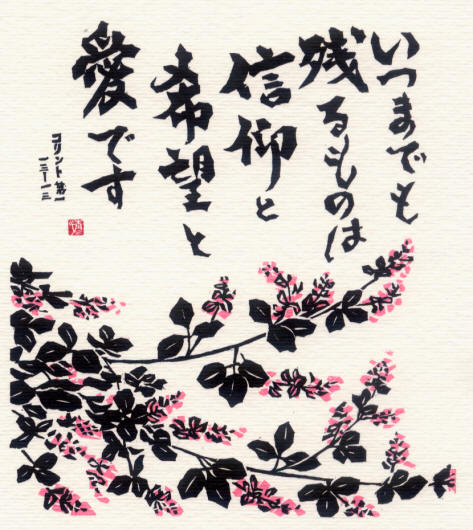 いつまでも
残るものは
信仰と
希望と
愛です
コリント第一
一三・一三